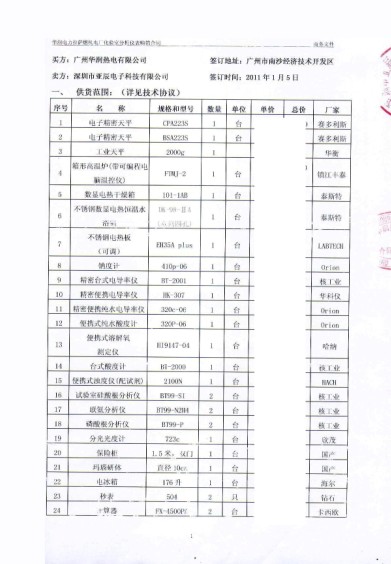 买方：广州华润热电有限公司 签订地址：广州市南沙经济技术开发区
卖方：深圳市亚辰电子科技有限公司 签订时间：2011年1月5日
一、 供货范围：（详见技术协议）
序号 名 称 规格和型号 数量 单位 单价 总价 厂家
1 电子精密天平 CPA223S 1 台 赛多利斯
2 电子精密天平 BSA223S 1 台 赛多利斯
3 工业天平 2000g 1 华衡
4 箱形高温炉(带可编程电脑温控仪) FTMJ-2 1 台 镇江丰泰
5 数显电热干燥箱 101-1AB 1 台 泰斯特
6 不锈钢数显电热恒温水浴 1 台 泰斯特
7 不锈钢电热板（可调） EH35A plus 1 台 LABTECH
8 钠度计 410p-06 1 台 Orion
9 精密台式电导率仪 BT-2001 1 台 核工业
10 精密便携电导率仪 HK-307 1 台 华科仪
11 精密便携纯水电导率仪 320c-06 1 台 Orion
12 便携式纯水酸度计 320P-06 1 台 Orion
13 便携式溶解氧测定仪 HI9147-04 1 台 哈纳
14 台式酸度计 BT-2000 1 台 核工业
15 便携式浊度仪(配试剂) 2100N 1 台 HACH
16 试验室硅酸根分析仪 BT99-S1 2 台 核工业
17 联氨分析仪 BT99-N2H4 2 台 核工业
18 磷酸根分析仪 BT99-P 2 台 核工业
19 分光光度计 723c 1 台 欣茂
20 保险柜 1.5米，双门 1 台 国产
21 玛瑙研钵 直径10cm 1 台 国产
22 电冰箱 176升 1 台 海尔
23 秒表 504 2 只 钻石
24 计算器 FX-4500P 2 台 卡西欧
1